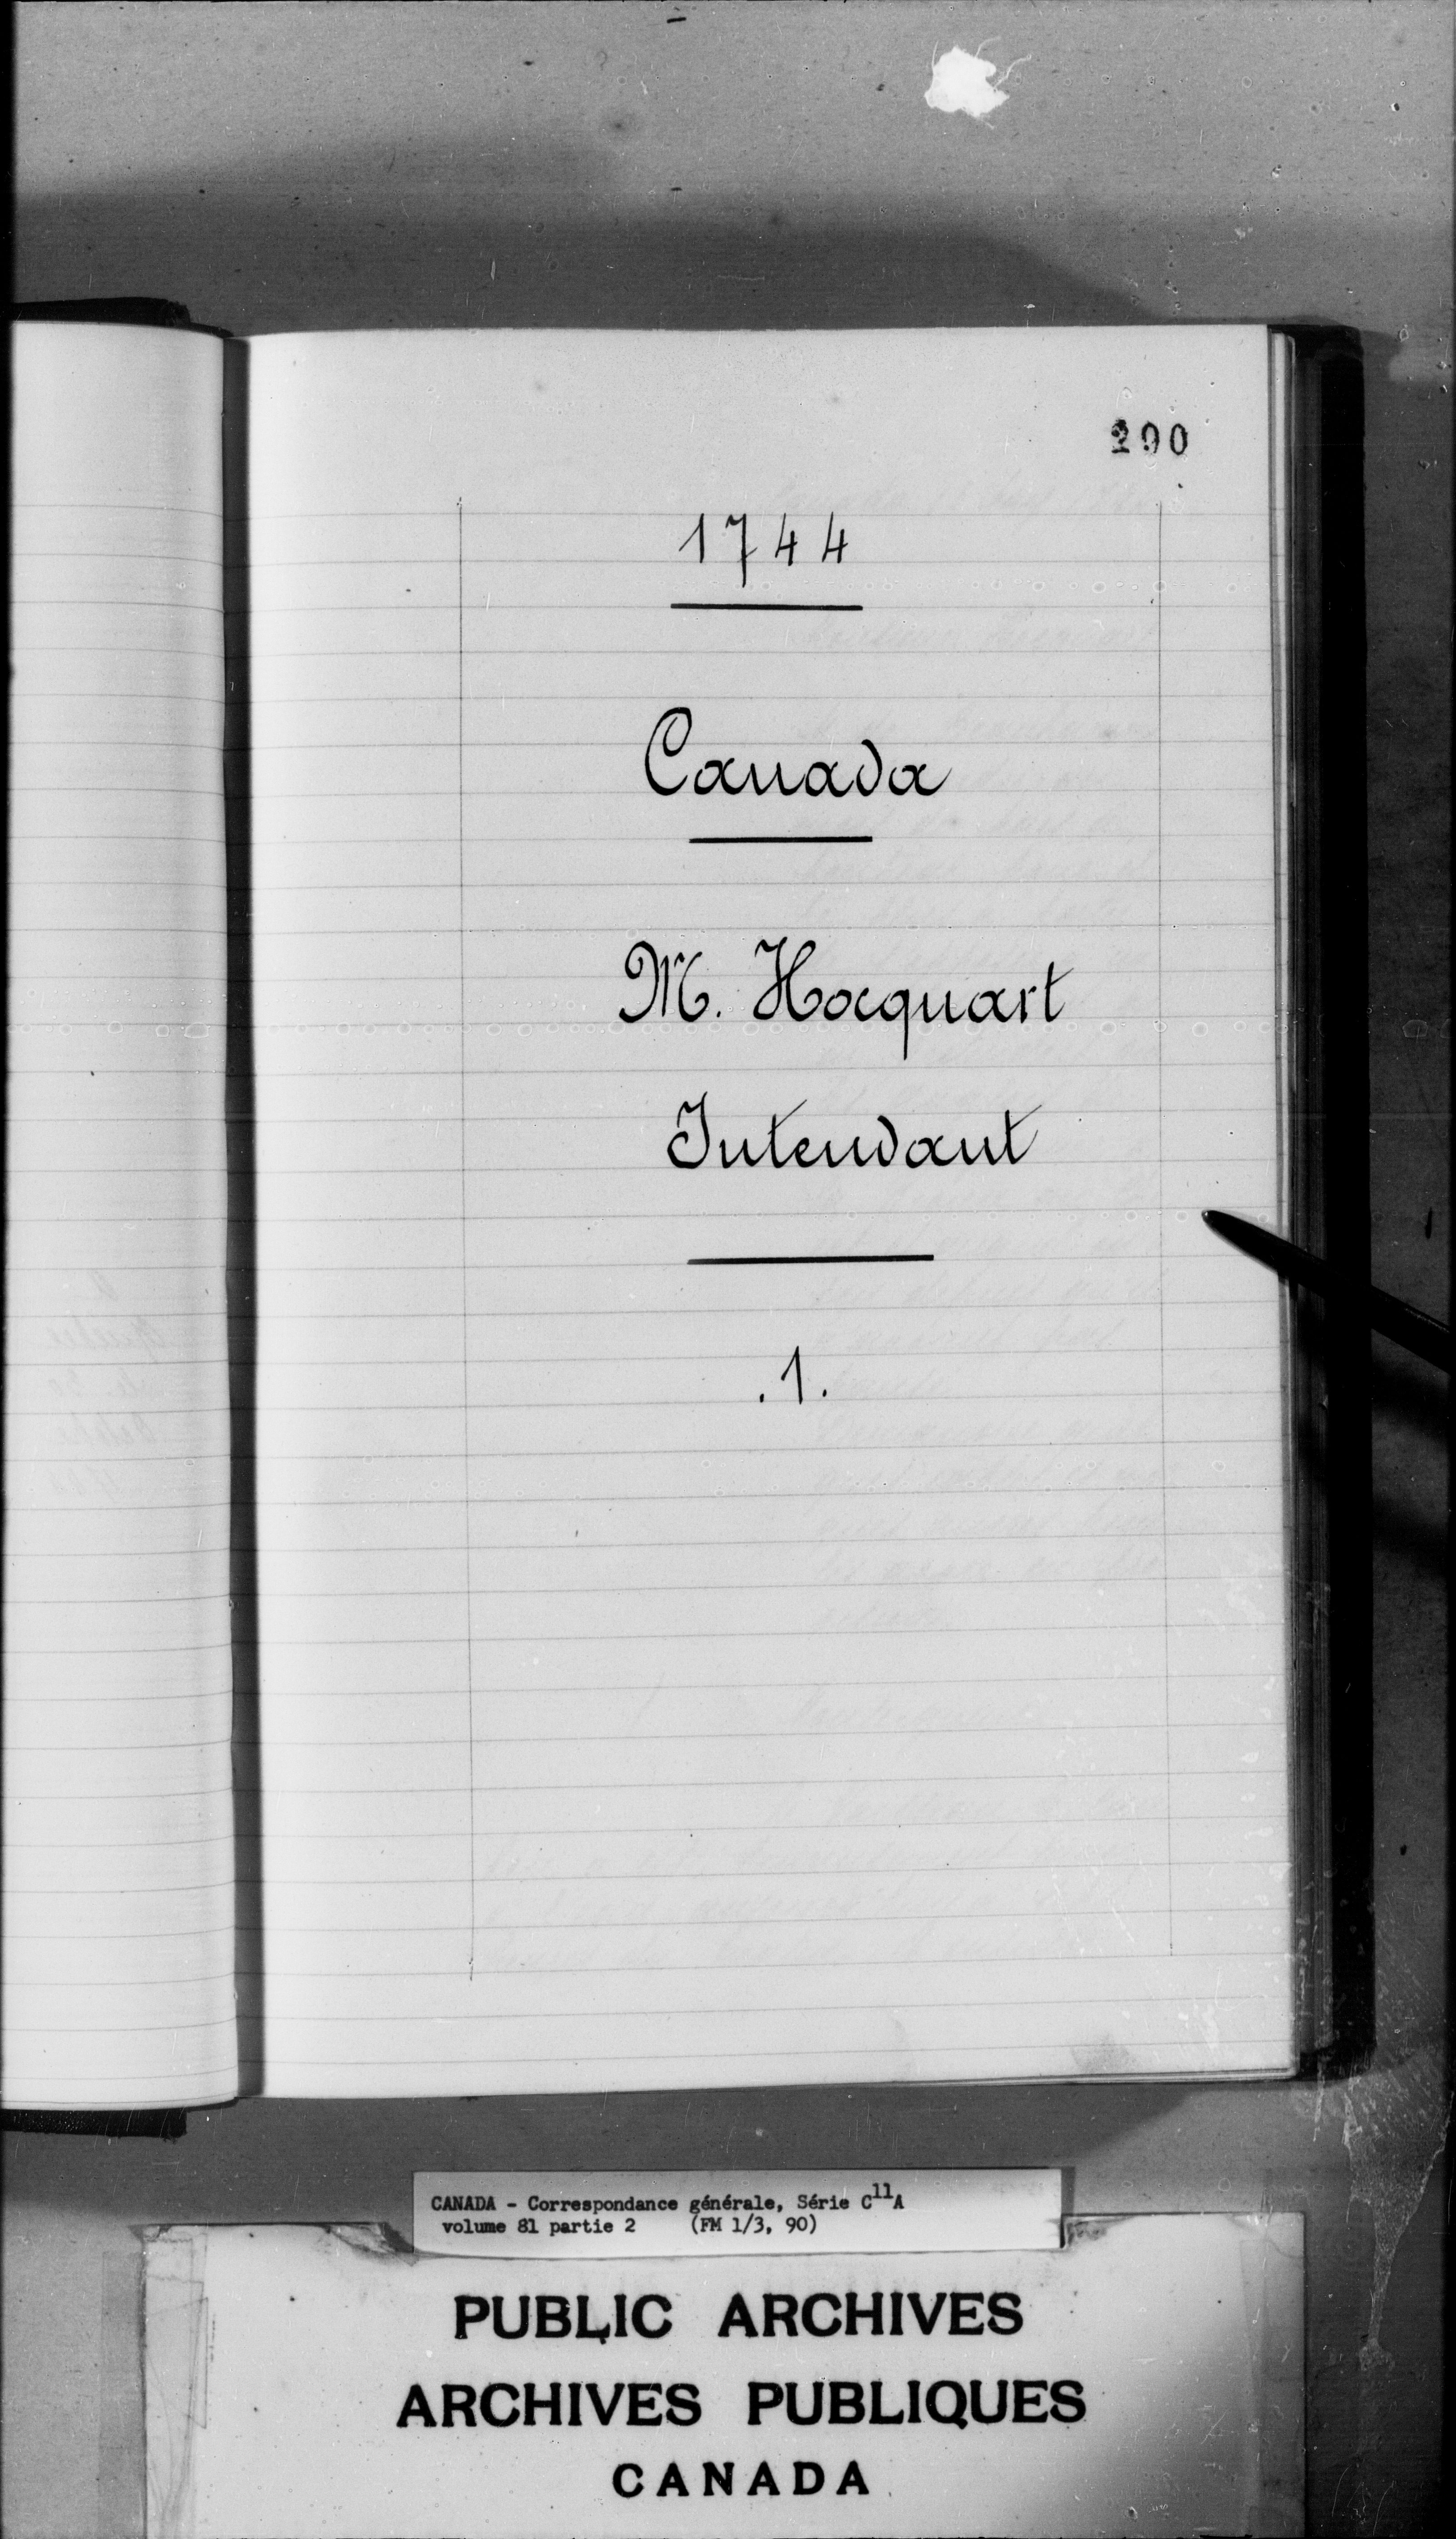 290
1744
Canada
M. Hocquart
Intendant
.1.
CANADA - Correspondance générale, Série C11A
volume 81 partie 2 (FM 1/3, 90)
PUBLIC ARCHIVES
ARCHIVES PUBLIQUES
CANADA